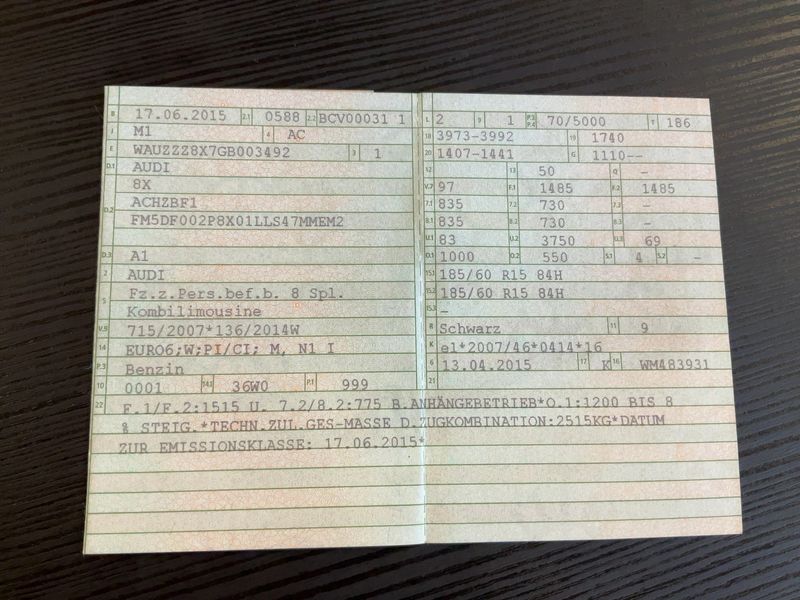 B 17.06.2015 2.1 0588 2.2 BCV00031 1
J M1 4 AC
E WAUZZZ8X7GB003492 3 1
D.1 AUDI
8X
D.2 ACHZBF1
FM5DF002P8X01LLS47MMEM2
D.3 A1
2 AUDI
5 Fz.z.Pers.bef.b. 8 Spl.
Kombilimousine
V.9 715/2007*136/2014W
14 EURO6;W;PI/CI; M, N1 I
P.3 Benzin
10 0001 14.1 36W0 P.1 999
L 2 9 1 P.2 P.4 70/5000 T 186
18 3973-3992 19 1740
20 1407-1441 G 1110--
12 13 50 Q -
V.7 97 F.1 1485 F.2 1485
7.1 835 7.2 730 7.3 -
8.1 835 8.2 730 8.3 -
U.1 83 U.2 3750 U.3 69
O.1 1000 O.2 550 S.1 4 S.2 -
15.1 185/60 R15 84H
15.2 185/60 R15 84H
15.3 -
R Schwarz 11 9
K e1*2007/46*0414*16
6 13.04.2015 17 K 16 WM483931
21
22 F.1/F.2:1515 U. 7.2/8.2:775 B.ANHÄNGEBETRIEB*O.1:1200 BIS 8
% STEIG.*TECHN.ZUL.GES-MASSE D.ZUGKOMBINATION:2515KG*DATUM
ZUR EMISSIONSKLASSE: 17.06.2015*